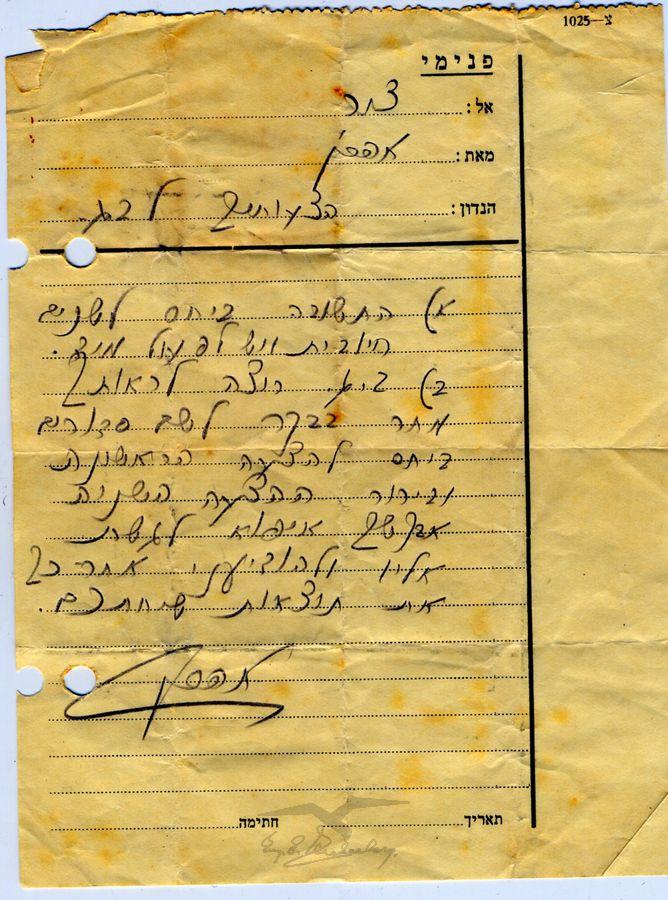 צ—1025
פנימי
אל: צור
מאת:
הנדון: הצעותיך לבג.
א) התשובה ביחס לשנים
חיובית ויש לפעול מיד.
ב) ב.ג. רוצה לראותך
מחר בבקר לשם סדורים
ביחס להצעה הראשונה
ובירור ההצעה השניה
אבקשך איפוא לגשת
אליו ולהודיעני אחר-כך
את תוצאות שיחתכם.
תאריך חתימה